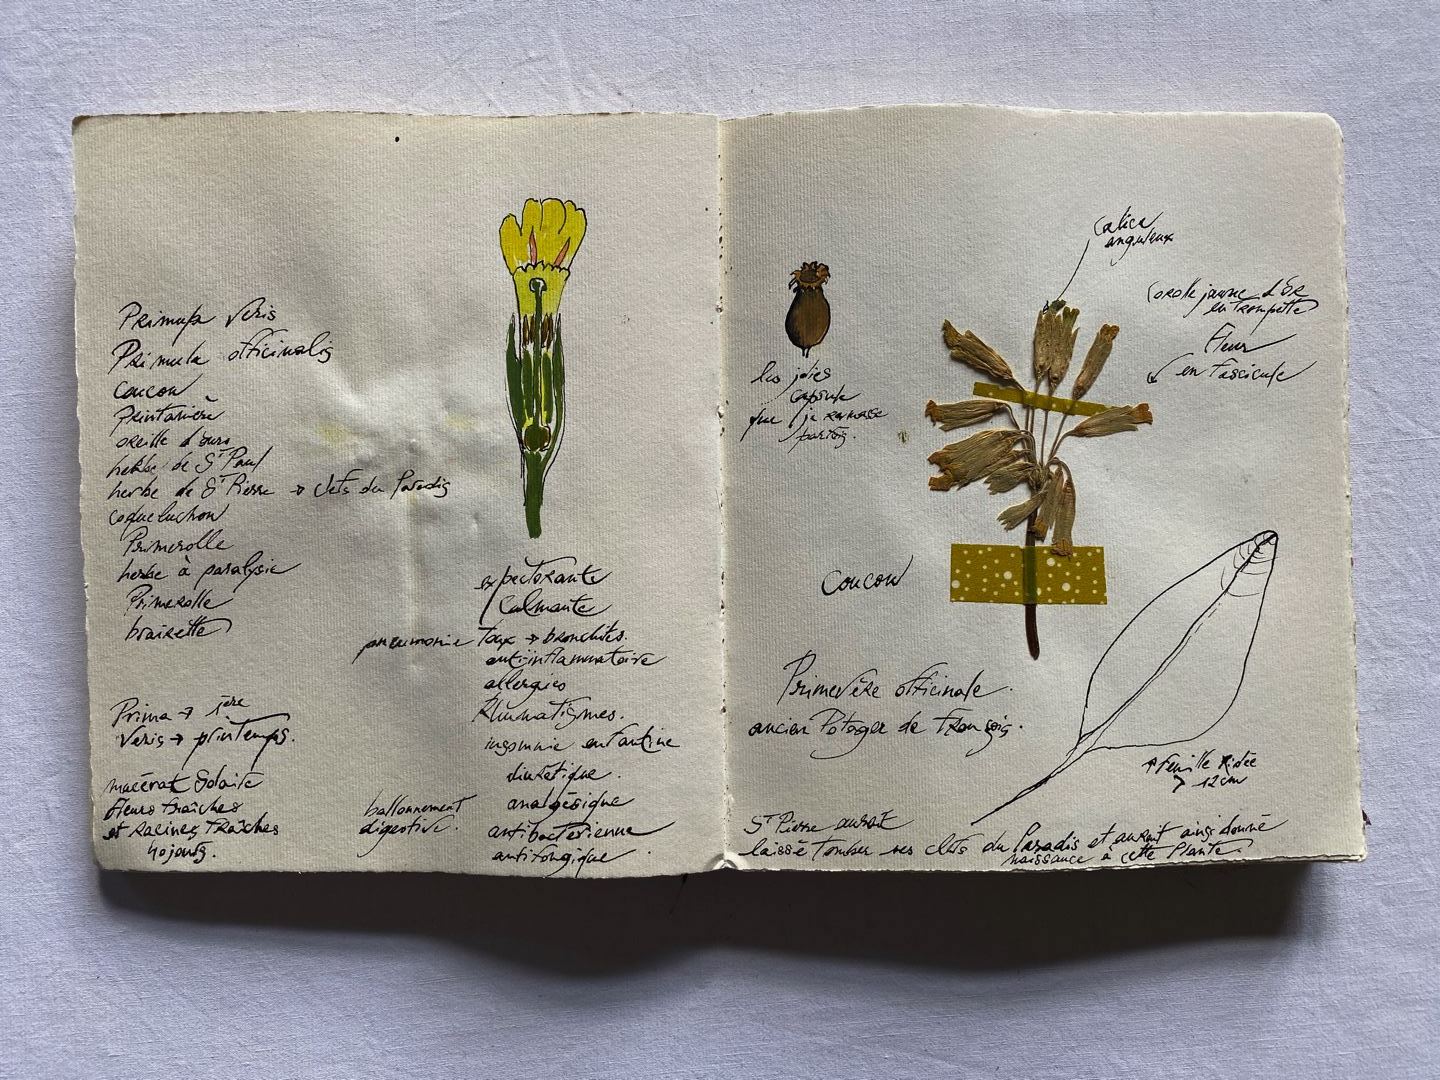 Primula Veris
Primula officinalis
coucou
Printanière
oreille d'ours
herbe de St Paul
herbe de St Pierre → clefs du Paradis
coqueluchon
Primerolle
herbe à paralysie
Primerolle
brairette
Prima → 1ère
Veris → printemps.
macérat Solaire
fleurs fraîches
et racines fraîches
40 jours.
expectorante
Calmante
pneumonie Toux → bronchites.
anti-inflammatoire
allergies
Rhumatismes.
insomnie enfantine
diurétique.
analgésique
antibactérienne
antifongique
ballonnement
digestive.
les jolies
capsule
que je ramasse
parfois.
Calice
anguleux
Corolle jaune d'Or
en trompette
fleur
en fascicule
coucou
Primevère officinale.
ancien Potager de François.
feuille ridée
> 12cm
St Pierre aurait
laissé tomber ses clefs du Paradis et aurait ainsi donné
naissance à cette Plante.